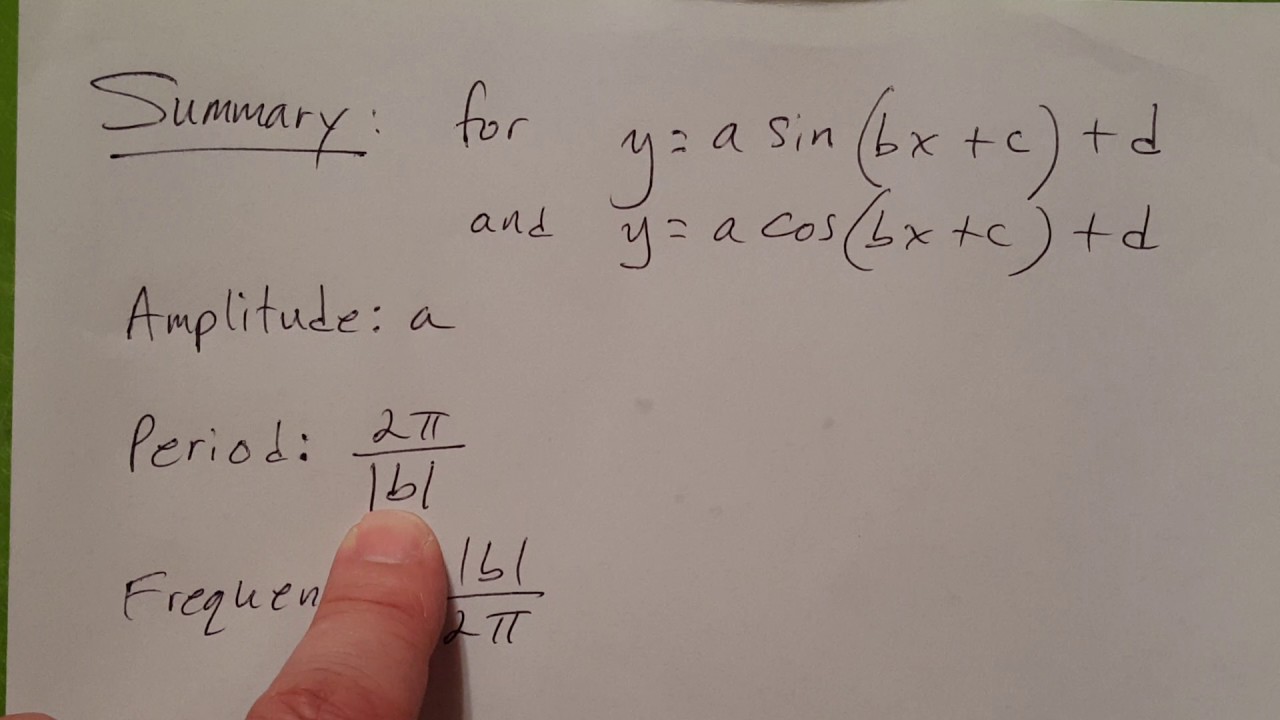 Summary: for y = a sin (bx + c) + d
and y = a cos (bx + c) + d
Amplitude: a
Period: 2π / |b|
Frequen |b| / 2π